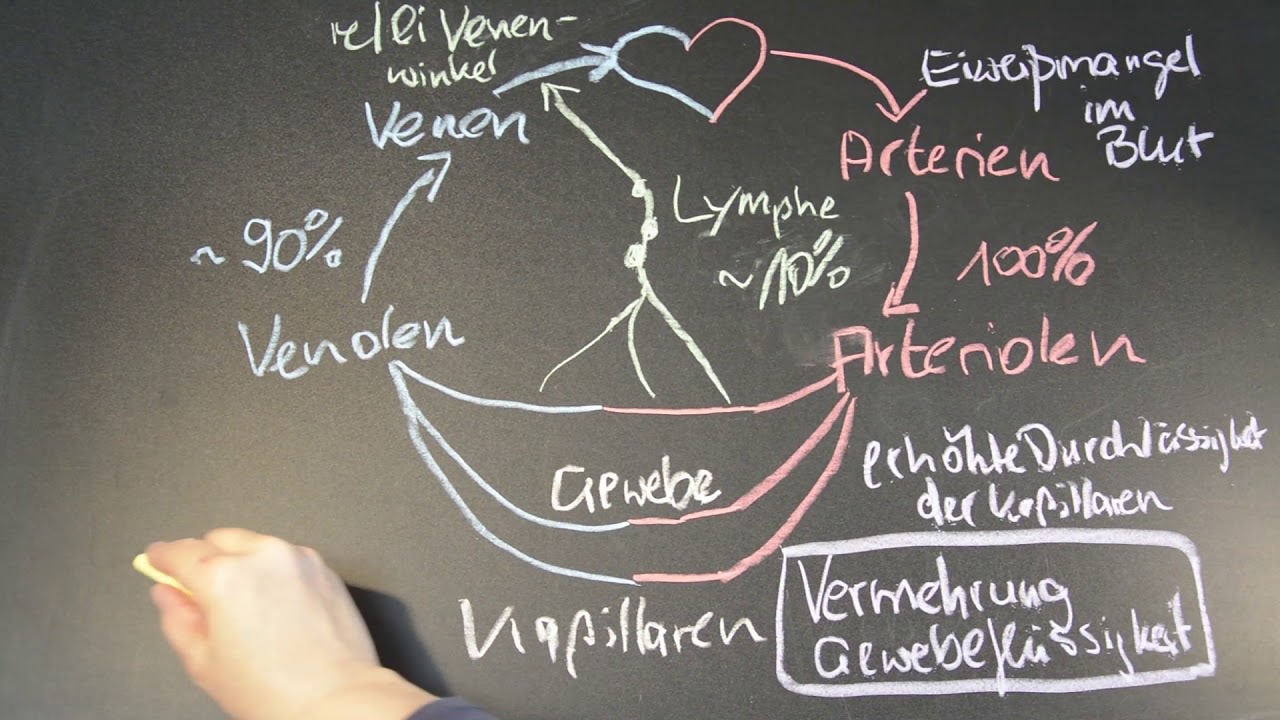 re/li Venen-
winkel
Venen
Eiweißmangel
im
Blut
Arterien
Lymphe
~10%
~90%
100%
Venolen
Arteriolen
Gewebe
erhöhte Durchlässigkeit
der Kapillaren
Kapillaren
Vermehrung
Gewebeflüssigkeit